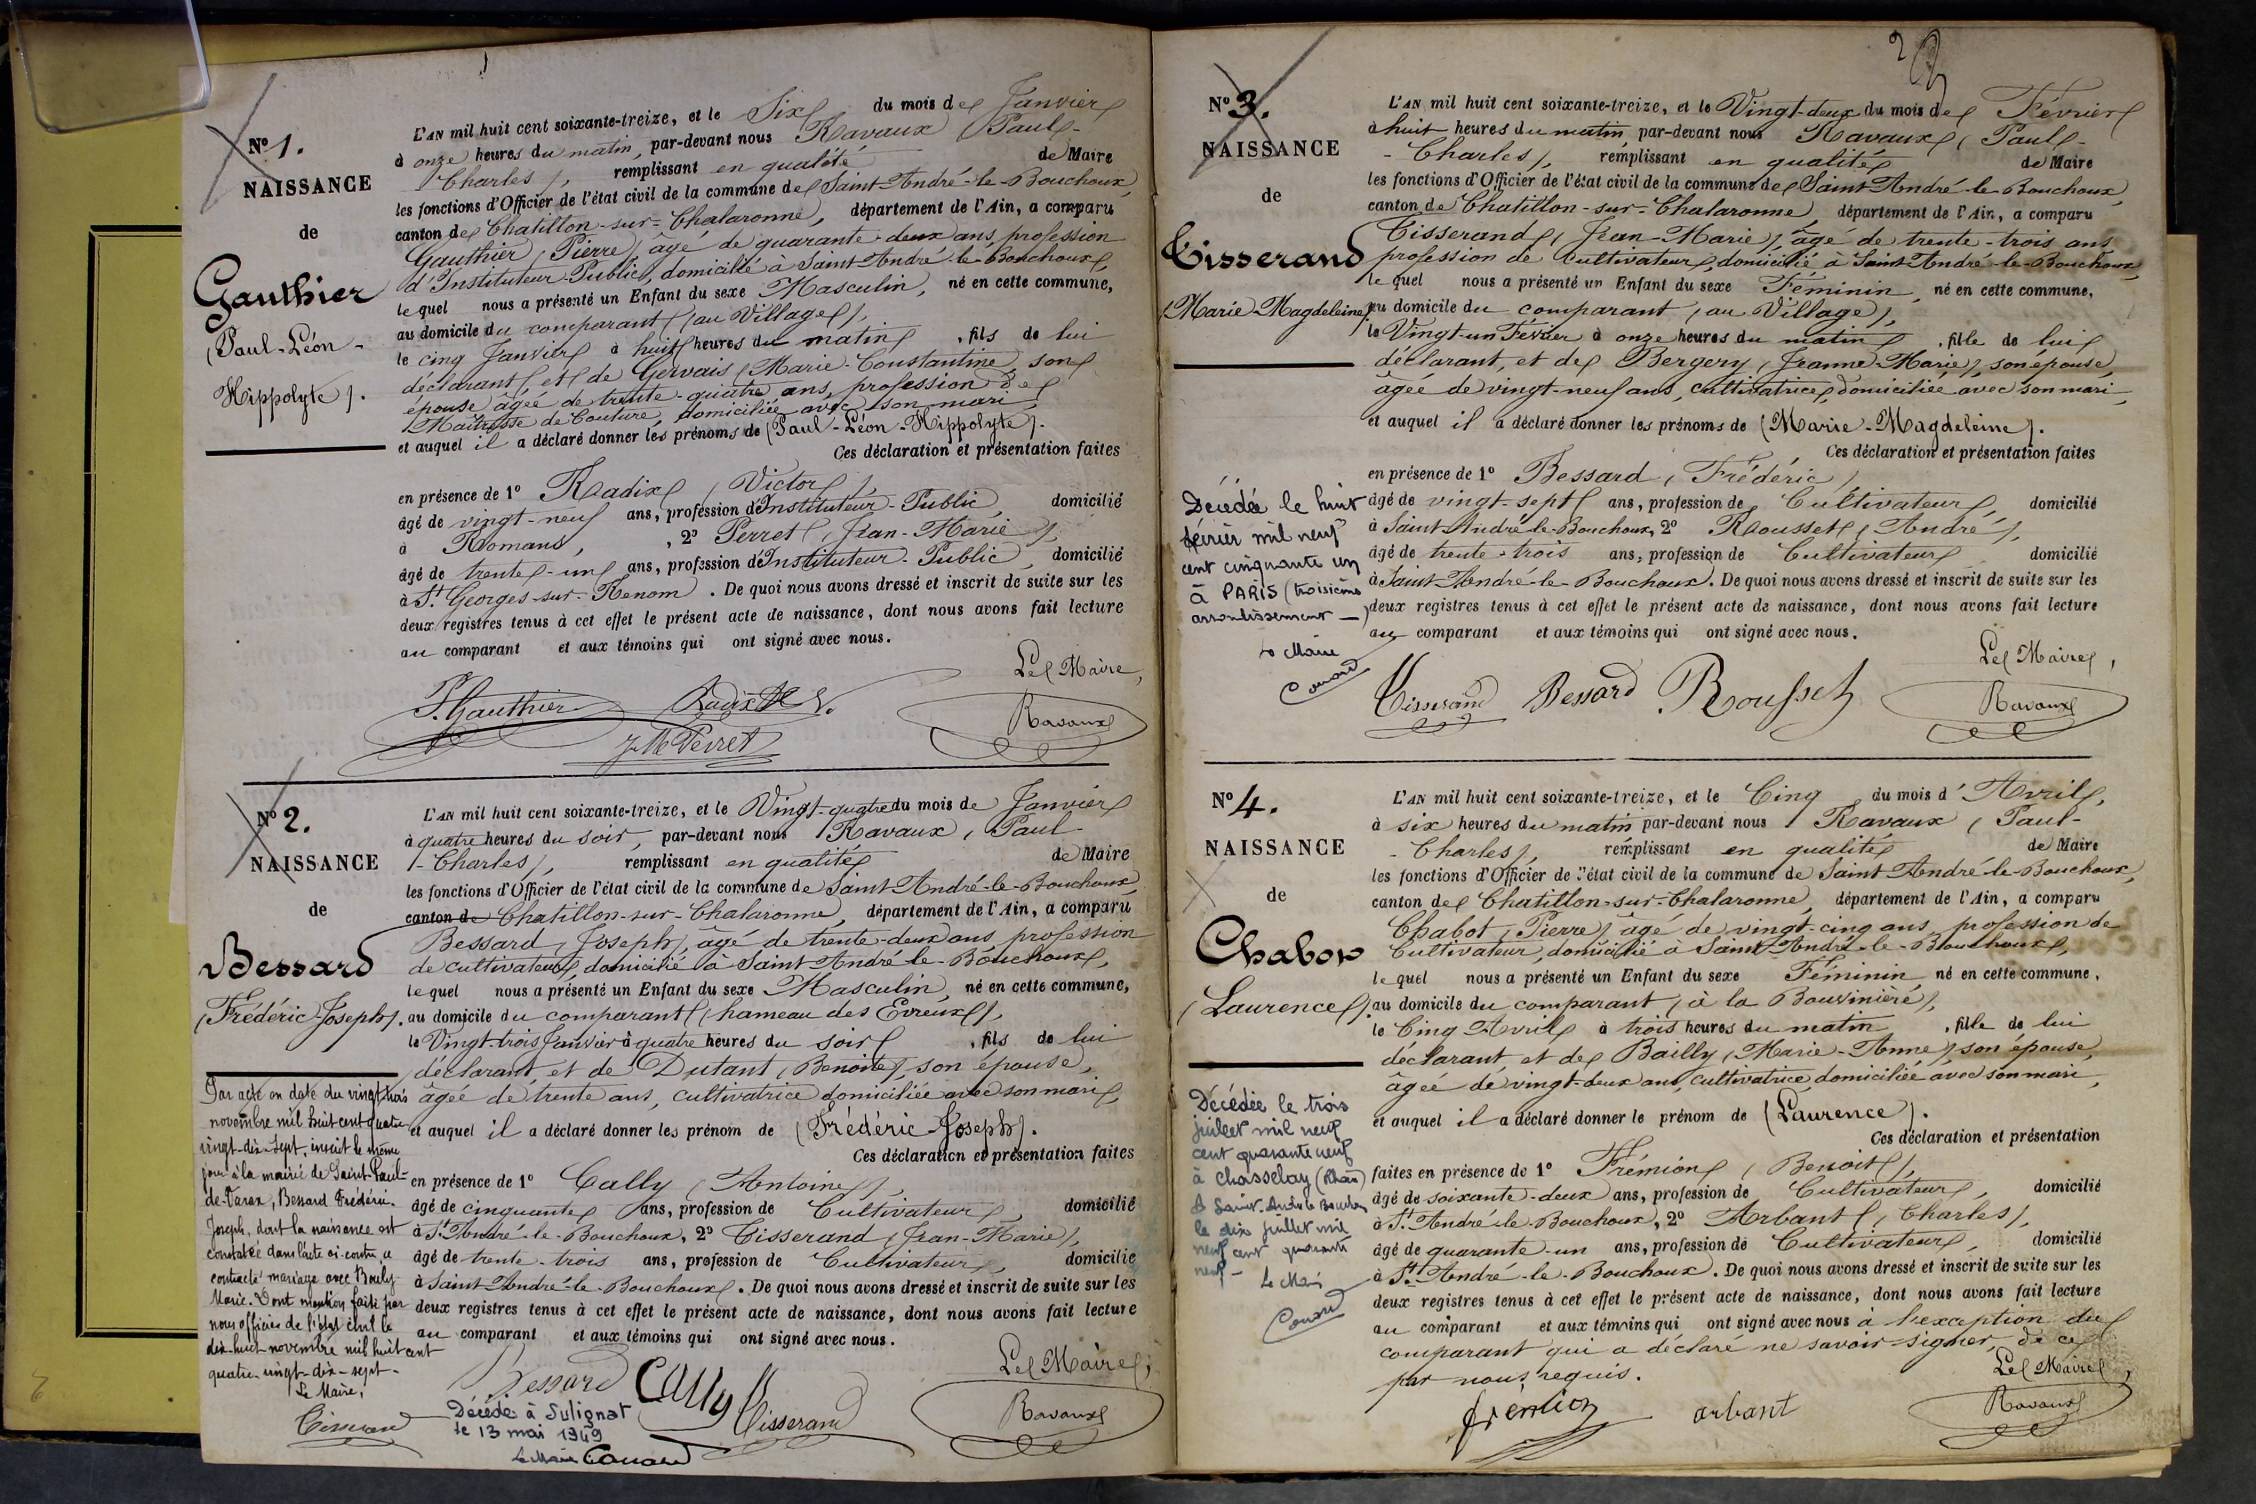 N° 1.
NAISSANCE
de
Gauthier
(Paul-Léon-
Hippolyte).
L'AN mil huit cent soixante-treize, et le Six du mois de Janvier
à onze heures du matin, par-devant nous Ravaux (Paul-
Charles), remplissant en qualité de Maire
les fonctions d'Officier de l'état civil de la commune de Saint-André-le-Bouchoux,
canton de Chatillon-sur-Chalaronne, département de l'Ain, a comparu
Gauthier (Pierre) âgé de quarante-deux ans, profession
d'Instituteur Public, domicilié à Saint-André-le-Bouchoux,
lequel nous a présenté un Enfant du sexe Masculin, né en cette commune,
au domicile du comparant (au Village),
le cinq Janvier à huit heures du matin, fils de lui
déclarant, et de Gervais (Marie-Constantine, son
épouse âgée de trente-quatre ans, profession de
Maîtresse de Couture, domiciliée avec son mari,
et auquel il a déclaré donner les prénoms de (Paul-Léon-Hippolyte).
Ces déclaration et présentation faites
en présence de 1° Radix (Victor),
âgé de vingt-neuf ans, profession d'Instituteur-Public, domicilié
à Romans, 2° Perret (Jean-Marie),
âgé de trente-un ans, profession d'Instituteur-Public, domicilié
à St. Georges-sur-Renom. De quoi nous avons dressé et inscrit de suite sur les
deux registres tenus à cet effet le présent acte de naissance, dont nous avons fait lecture
au comparant et aux témoins qui ont signé avec nous.
Le Maire,
P. Gauthier Radix V. Ravaux
J M Perret
N° 2.
NAISSANCE
de
Bessard
(Frédéric-Joseph).
L'AN mil huit cent soixante-treize, et le Vingt-quatre du mois de Janvier
à quatre heures du soir, par-devant nous Ravaux (Paul-
-Charles), remplissant en qualité de Maire
les fonctions d'Officier de l'état civil de la commune de Saint-André-le-Bouchoux,
canton de Chatillon-sur-Chalaronne, département de l'Ain, a comparu
Bessard (Joseph), âgé de trente-deux ans profession
de cultivateur, domicilié à Saint André-le-Bouchoux,
lequel nous a présenté un Enfant du sexe Masculin, né en cette commune,
au domicile du comparant (hameau des Evreux),
le Vingt-trois Janvier à quatre heures du soir, fils de lui
déclarant et de Dutant (Benoite), son épouse,
âgée de trente ans, cultivatrice domiciliée avec son mari,
et auquel il a déclaré donner les prénom de (Frédéric-Joseph).
Ces déclaration et présentation faites
en présence de 1° Cally (Antoine),
âgé de cinquante ans, profession de Cultivateur, domicilié
à St. André-le-Bouchoux, 2° Tisserand (Jean-Marie),
âgé de trente-trois ans, profession de Cultivateur, domicilié
à Saint-André-le-Bouchoux. De quoi nous avons dressé et inscrit de suite sur les
deux registres tenus à cet effet le présent acte de naissance, dont nous avons fait lecture
au comparant et aux témoins qui ont signé avec nous.
Le Maire,
Bessard Cally Tisserand Ravaux
Par acte en date du vingt trois
novembre mil huit cent quatre
vingt-dix-sept, inscrit le même
jour à la mairie de Saint-Paul-
de-Varax, Bessard Frédéric-
Joseph, dont la naissance est
constatée dans l'acte ci-contre, a
contracté mariage avec Bouly
Marie. Dont mention faite par
nous officier de l'état civil le
dix-huit novembre mil huit cent
quatre-vingt-dix-sept-
Le Maire,
Tisserand
Décédé à Sulignat
le 13 mai 1949
Le Maire
N° 3.
NAISSANCE
de
Tisserand
(Marie Magdeleine)
L'AN mil huit cent soixante-treize, et le Vingt-deux du mois de Février
à huit heures du matin, par-devant nous Ravaux (Paul-
-Charles), remplissant en qualité de Maire
les fonctions d'Officier de l'état civil de la commune de Saint-André-le-Bouchoux,
canton de Chatillon-sur-Chalaronne, département de l'Ain, a comparu
Tisserand (Jean-Marie), âgé de trente-trois ans
profession de Cultivateur, domicilié à Saint-André-le-Bouchoux,
lequel nous a présenté un Enfant du sexe Féminin, né en cette commune,
au domicile du comparant (au Village),
le Vingt-un Février à onze heures du matin, fille de lui
déclarant, et de Bergery (Jeanne-Marie), son épouse,
âgée de vingt-neuf ans, cultivatrice, domiciliée avec son mari,
et auquel il a déclaré donner les prénoms de (Marie-Magdeleine).
Ces déclaration et présentation faites
en présence de 1° Bessard (Frédéric),
âgé de vingt-sept ans, profession de Cultivateur, domicilié
à Saint-André-le-Bouchoux, 2° Rousset (André),
âgé de trente-trois ans, profession de Cultivateur, domicilié
à Saint-André-le-Bouchoux. De quoi nous avons dressé et inscrit de suite sur les
deux registres tenus à cet effet le présent acte de naissance, dont nous avons fait lecture
au comparant et aux témoins qui ont signé avec nous.
Le Maire,
Tisserand Bessard Rousset Ravaux
Décédée le huit
février mil neuf
cent cinquante un
à PARIS (troisième
arrondissement —)
Le Maire
N° 4.
NAISSANCE
de
Chabot
(Laurence).
L'AN mil huit cent soixante-treize, et le Cinq du mois d'Avril,
à six heures du matin par-devant nous Ravaux (Paul-
-Charles), remplissant en qualité de Maire
les fonctions d'Officier de l'état civil de la commune de Saint André-le-Bouchoux,
canton de Chatillon-sur-Chalaronne, département de l'Ain, a comparu
Chabot (Pierre) âgé de vingt-cinq ans, profession de
Cultivateur, domicilié à Saint André-le-Bouchoux,
lequel nous a présenté un Enfant du sexe Féminin, né en cette commune,
au domicile du comparant (à la Bouvinière),
le Cinq Avril à trois heures du matin, fille de lui
déclarant, et de Bailly (Marie-Anne) son épouse,
âgée de vingt-deux ans, cultivatrice domiciliée avec son mari,
et auquel il a déclaré donner le prénom de (Laurence).
Ces déclaration et présentation
faites en présence de 1° Frémion (Benoit),
âgé de soixante-deux ans, profession de Cultivateur, domicilié
à St. André-le-Bouchoux, 2° Arbant (Charles),
âgé de quarante-un ans, profession de Cultivateur, domicilié
à St André-le-Bouchoux. De quoi nous avons dressé et inscrit de suite sur les
deux registres tenus à cet effet le présent acte de naissance, dont nous avons fait lecture
au comparant et aux témoins qui ont signé avec nous à l'exception du
comparant qui a déclaré ne savoir signer, de ce
par nous requis.
Le Maire,
frémion arbant Ravaux
Décédée le trois
juillet mil neuf
cent quarante neuf
à Chasselay (Rhône)
A Saint-André le Bouchoux
le dix juillet mil
neuf cent quarante
neuf -
Le Maire